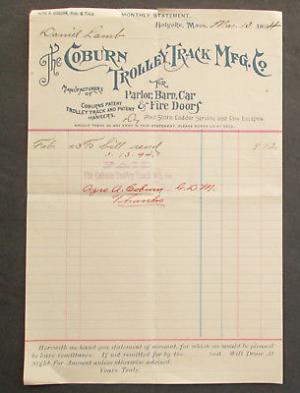 MONTHLY STATEMENT.
Holyoke, Mass. Mar. 13, 1894
Daniel Lamb
The COBURN TROLLEY TRACK MFG. CO
MANUFACTURERS OF
COBURN'S PATENT TROLLEY TRACK AND PATENT HANGERS.
FOR
Parlor, Barn, Car
& Fire Doors
Also Store Ladder Service and Fire Escapes.
Feb 23 To bill rend 8 12
3.13.94
PAID
The Coburn Trolley Track Mfg. Co.
Azro A. Coburn
Thanks
Herewith we hand you statement of account, for which we would be pleased
to have remittance. If not remitted for by the inst. Will Draw At
Sight For Amount unless otherwise advised.
Yours Truly.